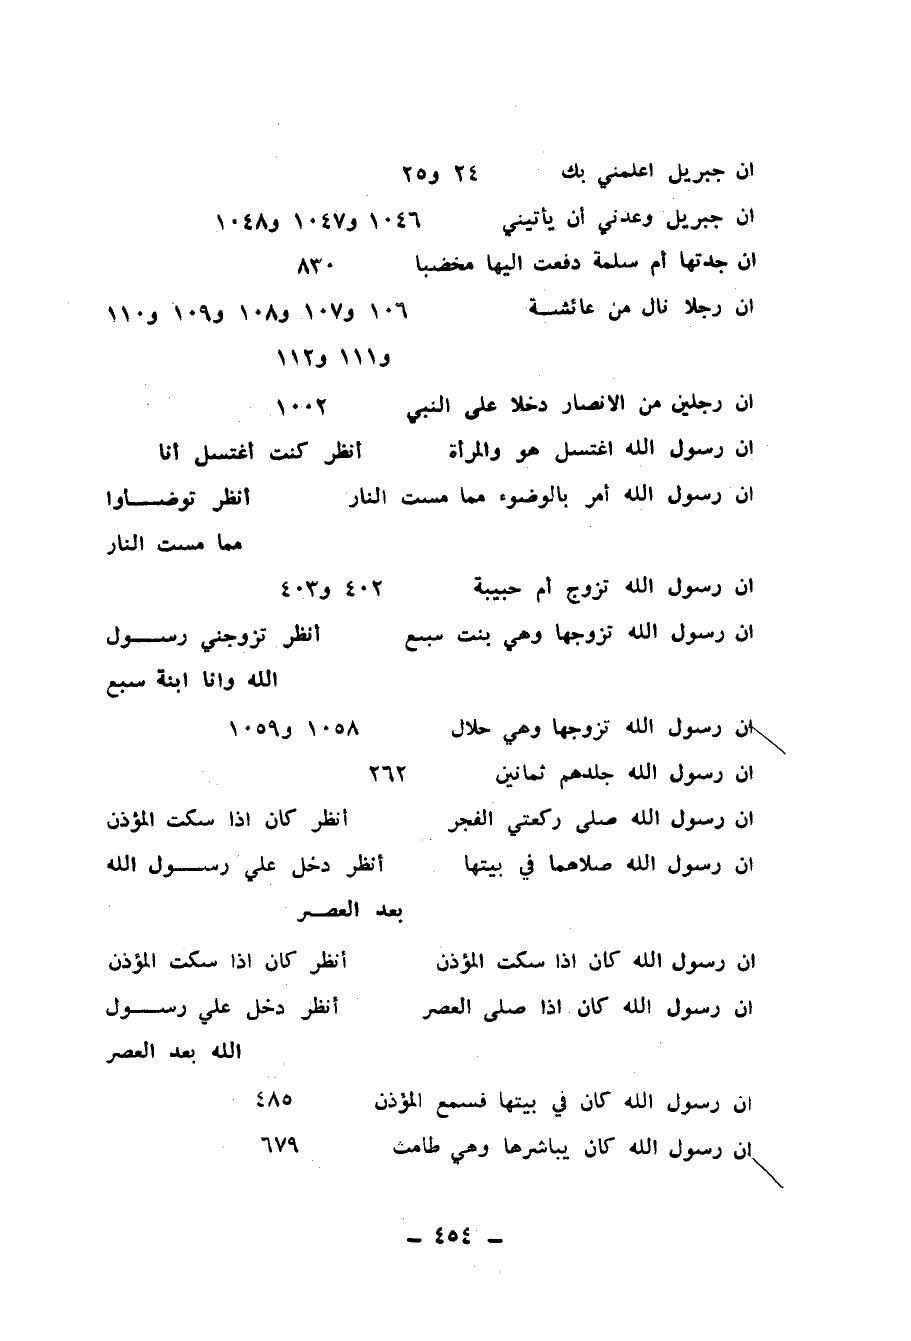 ان جبريل اعلمني بك ٢٤ و٢٥
ان جبريل وعدني أن يأتيني ١٠٤٦ و١٠٤٧ و١٠٤٨
ان جدتها أم سلمة دفعت اليها مخضبا ٨٣٠
ان رجلا نال من عائشـــة ١٠٦ و١٠٧ و١٠٨ و١٠٩ و١١٠
و١١١ و١١٢
ان رجلين من الانصار دخلا على النبي ١٠٠٢
ان رسول الله اغتسل هو والمرأة أنظر كنت أغتسل أنا
ان رسول الله أمر بالوضوء مما مست النار أنظر توضـــأوا
مما مست النار
ان رسول الله تزوج أم حبيبة ٤٠٢ و٤٠٣
ان رسول الله تزوجها وهي بنت سبع أنظر تزوجني رســـول
الله وانا ابنة سبع
ان رسول الله تزوجها وهي حلال ١٠٥٨ و١٠٥٩
ان رسول الله جلدهم ثمانين ٢٦٢
ان رسول الله صلى ركعتي الفجر أنظر كان اذا سكت المؤذن
ان رسول الله صلاهما في بيتها أنظر دخل علي رســـول الله
بعد العصـــر
ان رسول الله كان اذا سكت المؤذن أنظر كان اذا سكت المؤذن
ان رسول الله كان اذا صلى العصر أنظر دخل علي رســـول
الله بعد العصر
ان رسول الله كان في بيتها فسمع المؤذن ٤٨٥
ان رسول الله كان يباشرها وهي طامث ٦٧٩
– ٤٥٤ –